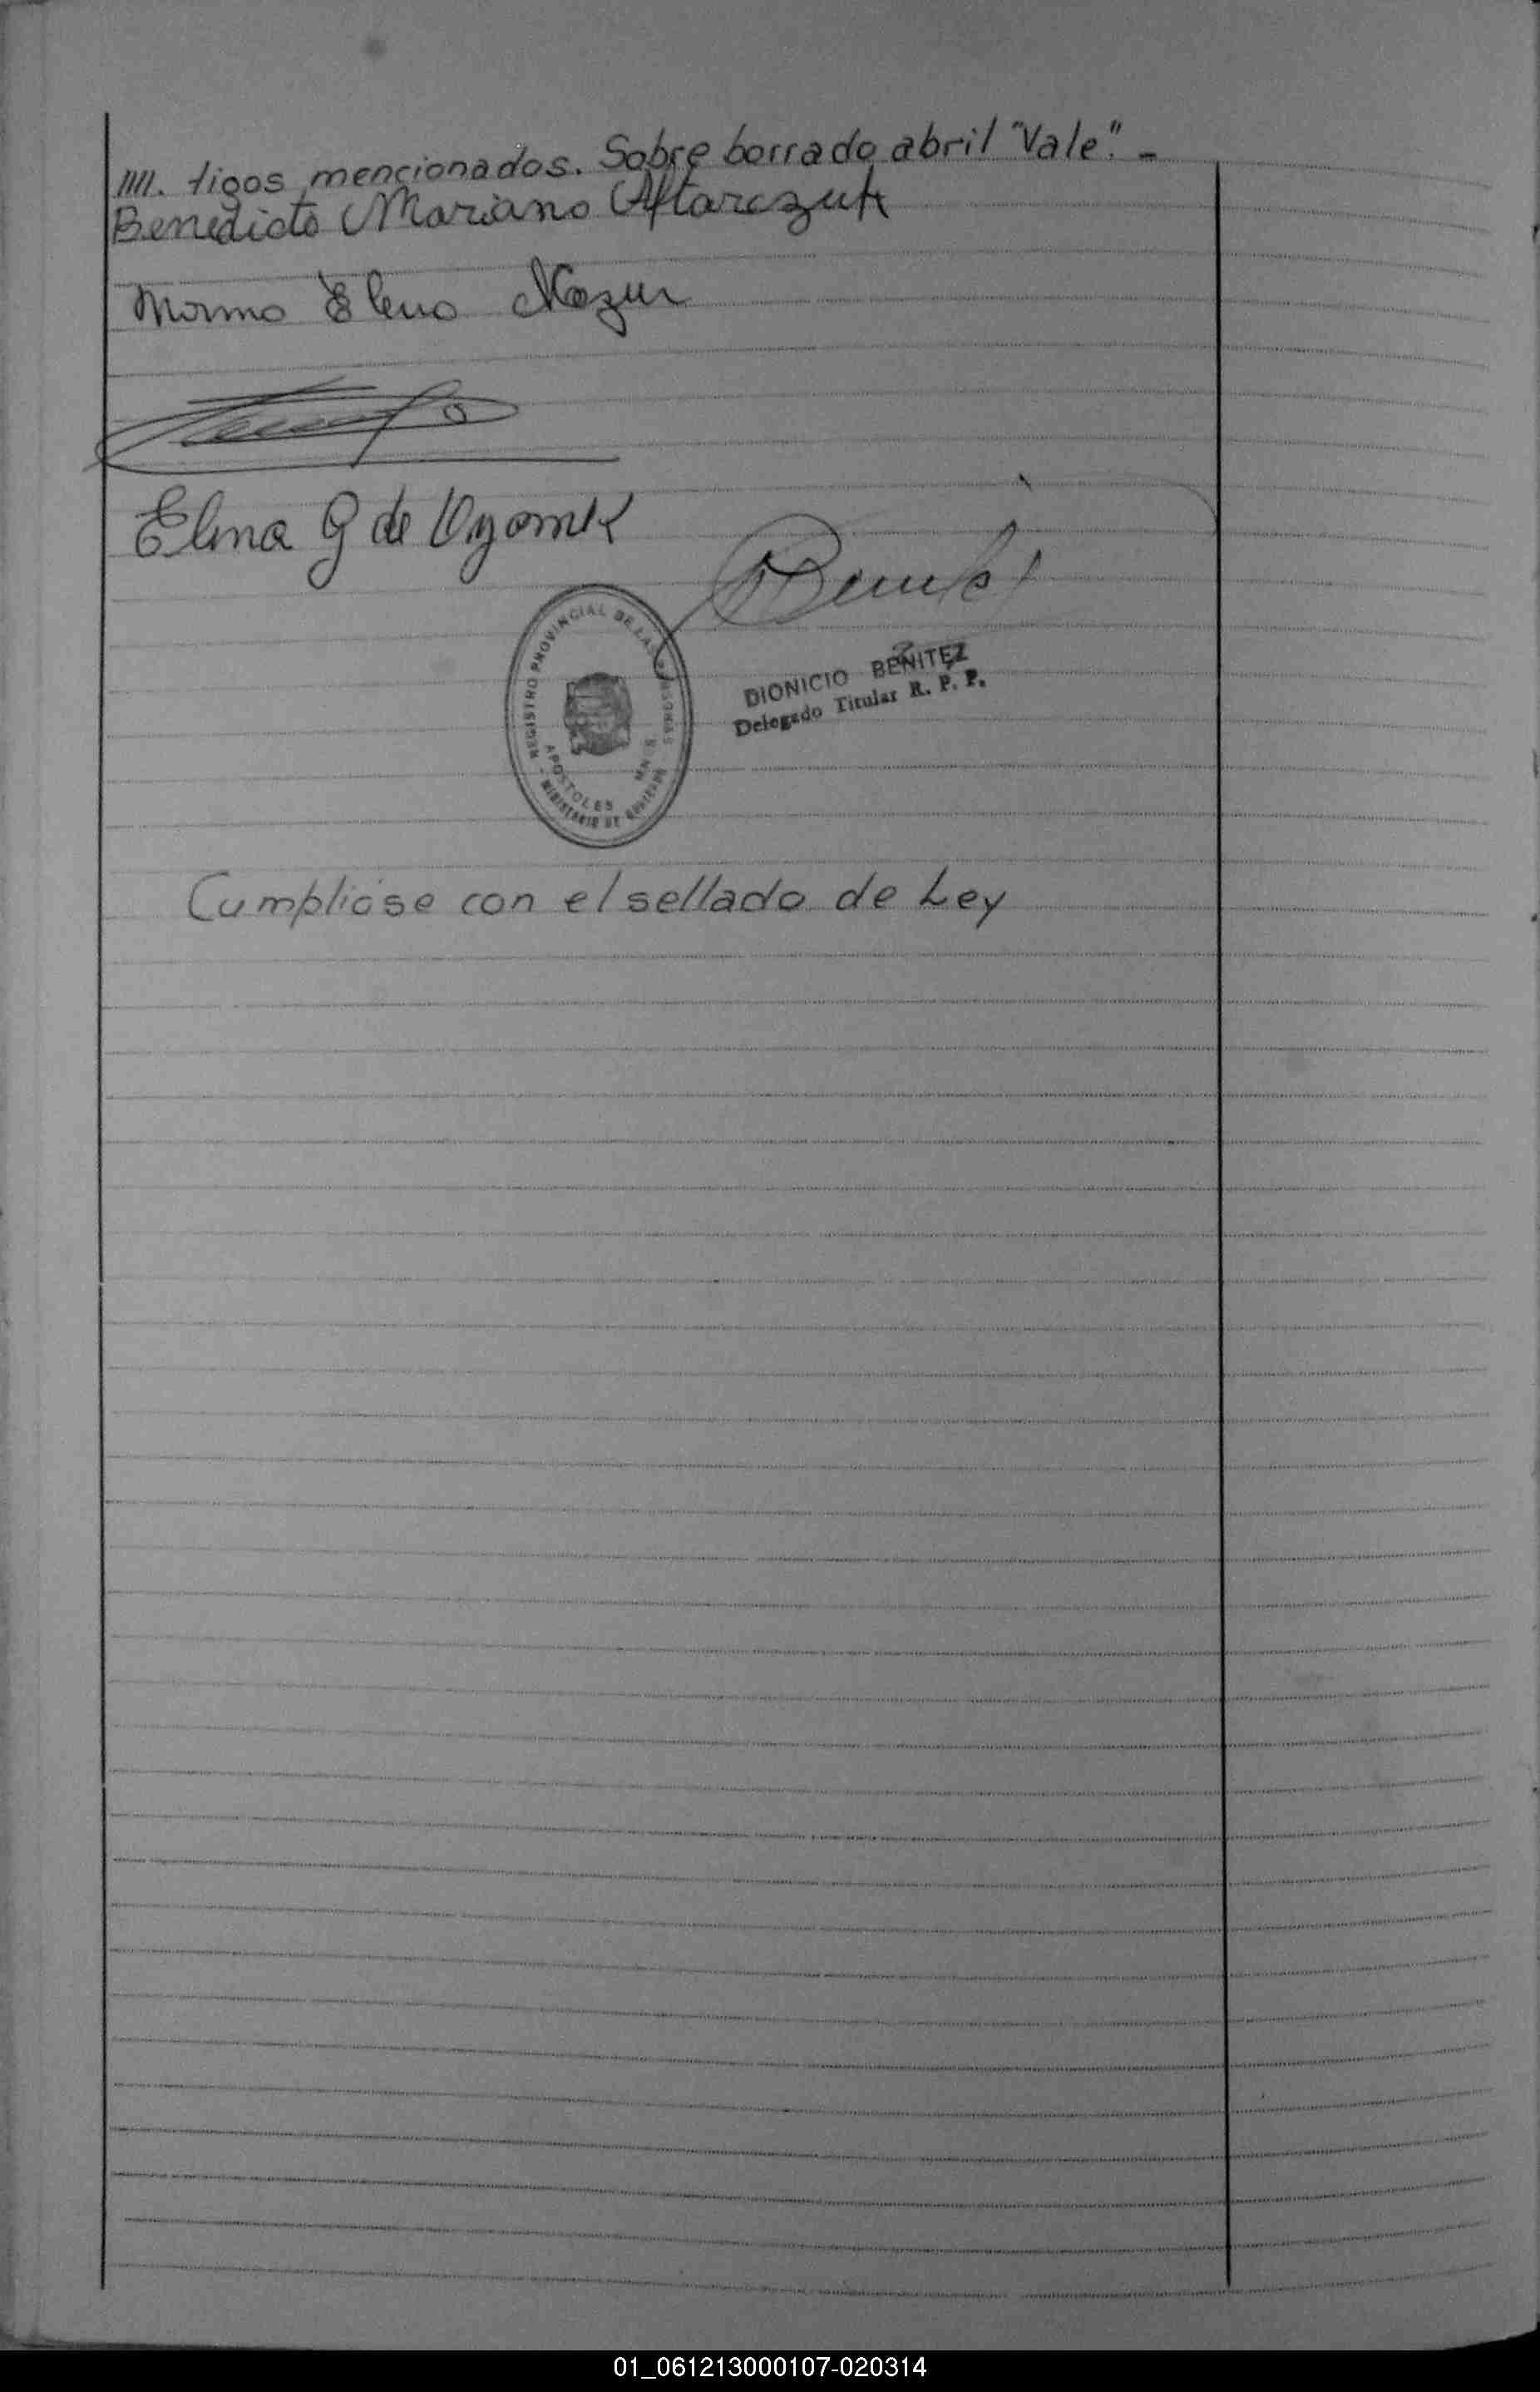 ////. tigos mencionados. Sobre borrado abril "Vale". -
Benedicto Mariano Aftarczuk
Norma Elena Mazur
Elena G de
DIONICIO BENITEZ
Delegado Titular R. P. P.
REGISTRO PROVINCIAL DE LAS PERSONAS
APOSTOLES MNES
MINISTERIO DE GOBIERNO
Cumplióse con el sellado de Ley
01_061213000107-020314